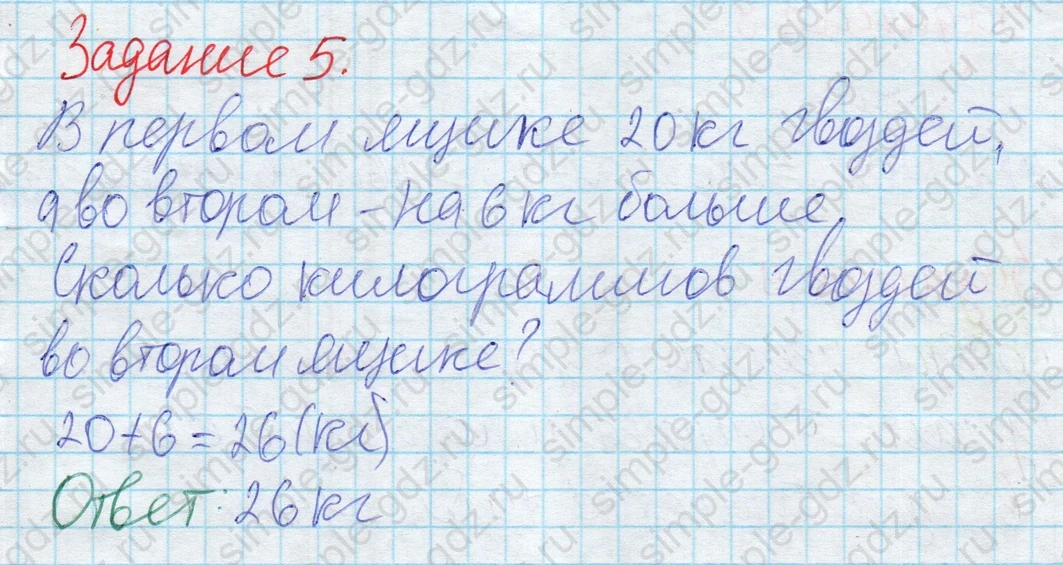 Задание 5.
В первом ящике 20 кг гвоздей,
а во втором - на 6 кг больше.
Сколько килограммов гвоздей
во втором ящике?
20+6=26(кг)
Ответ: 26 кг